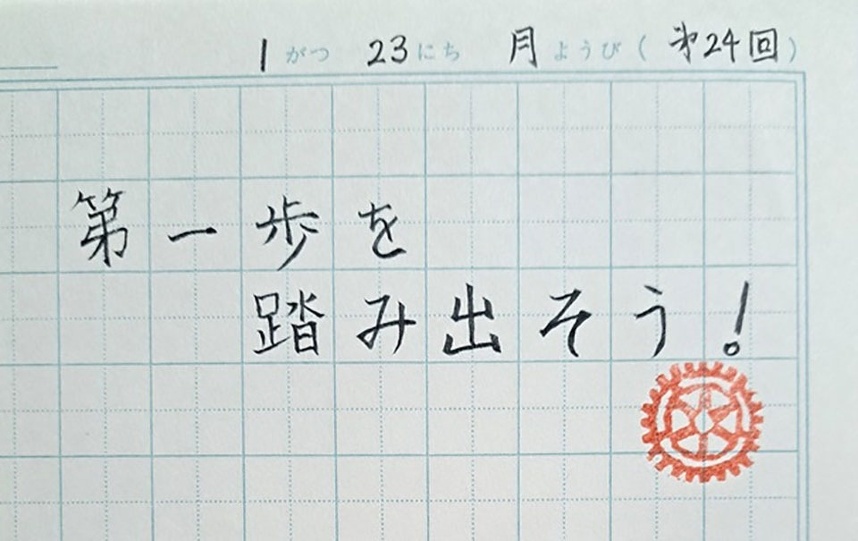 1 がつ 23 にち 月 ようび ( 第24回 )
第一歩を
踏み出そう!